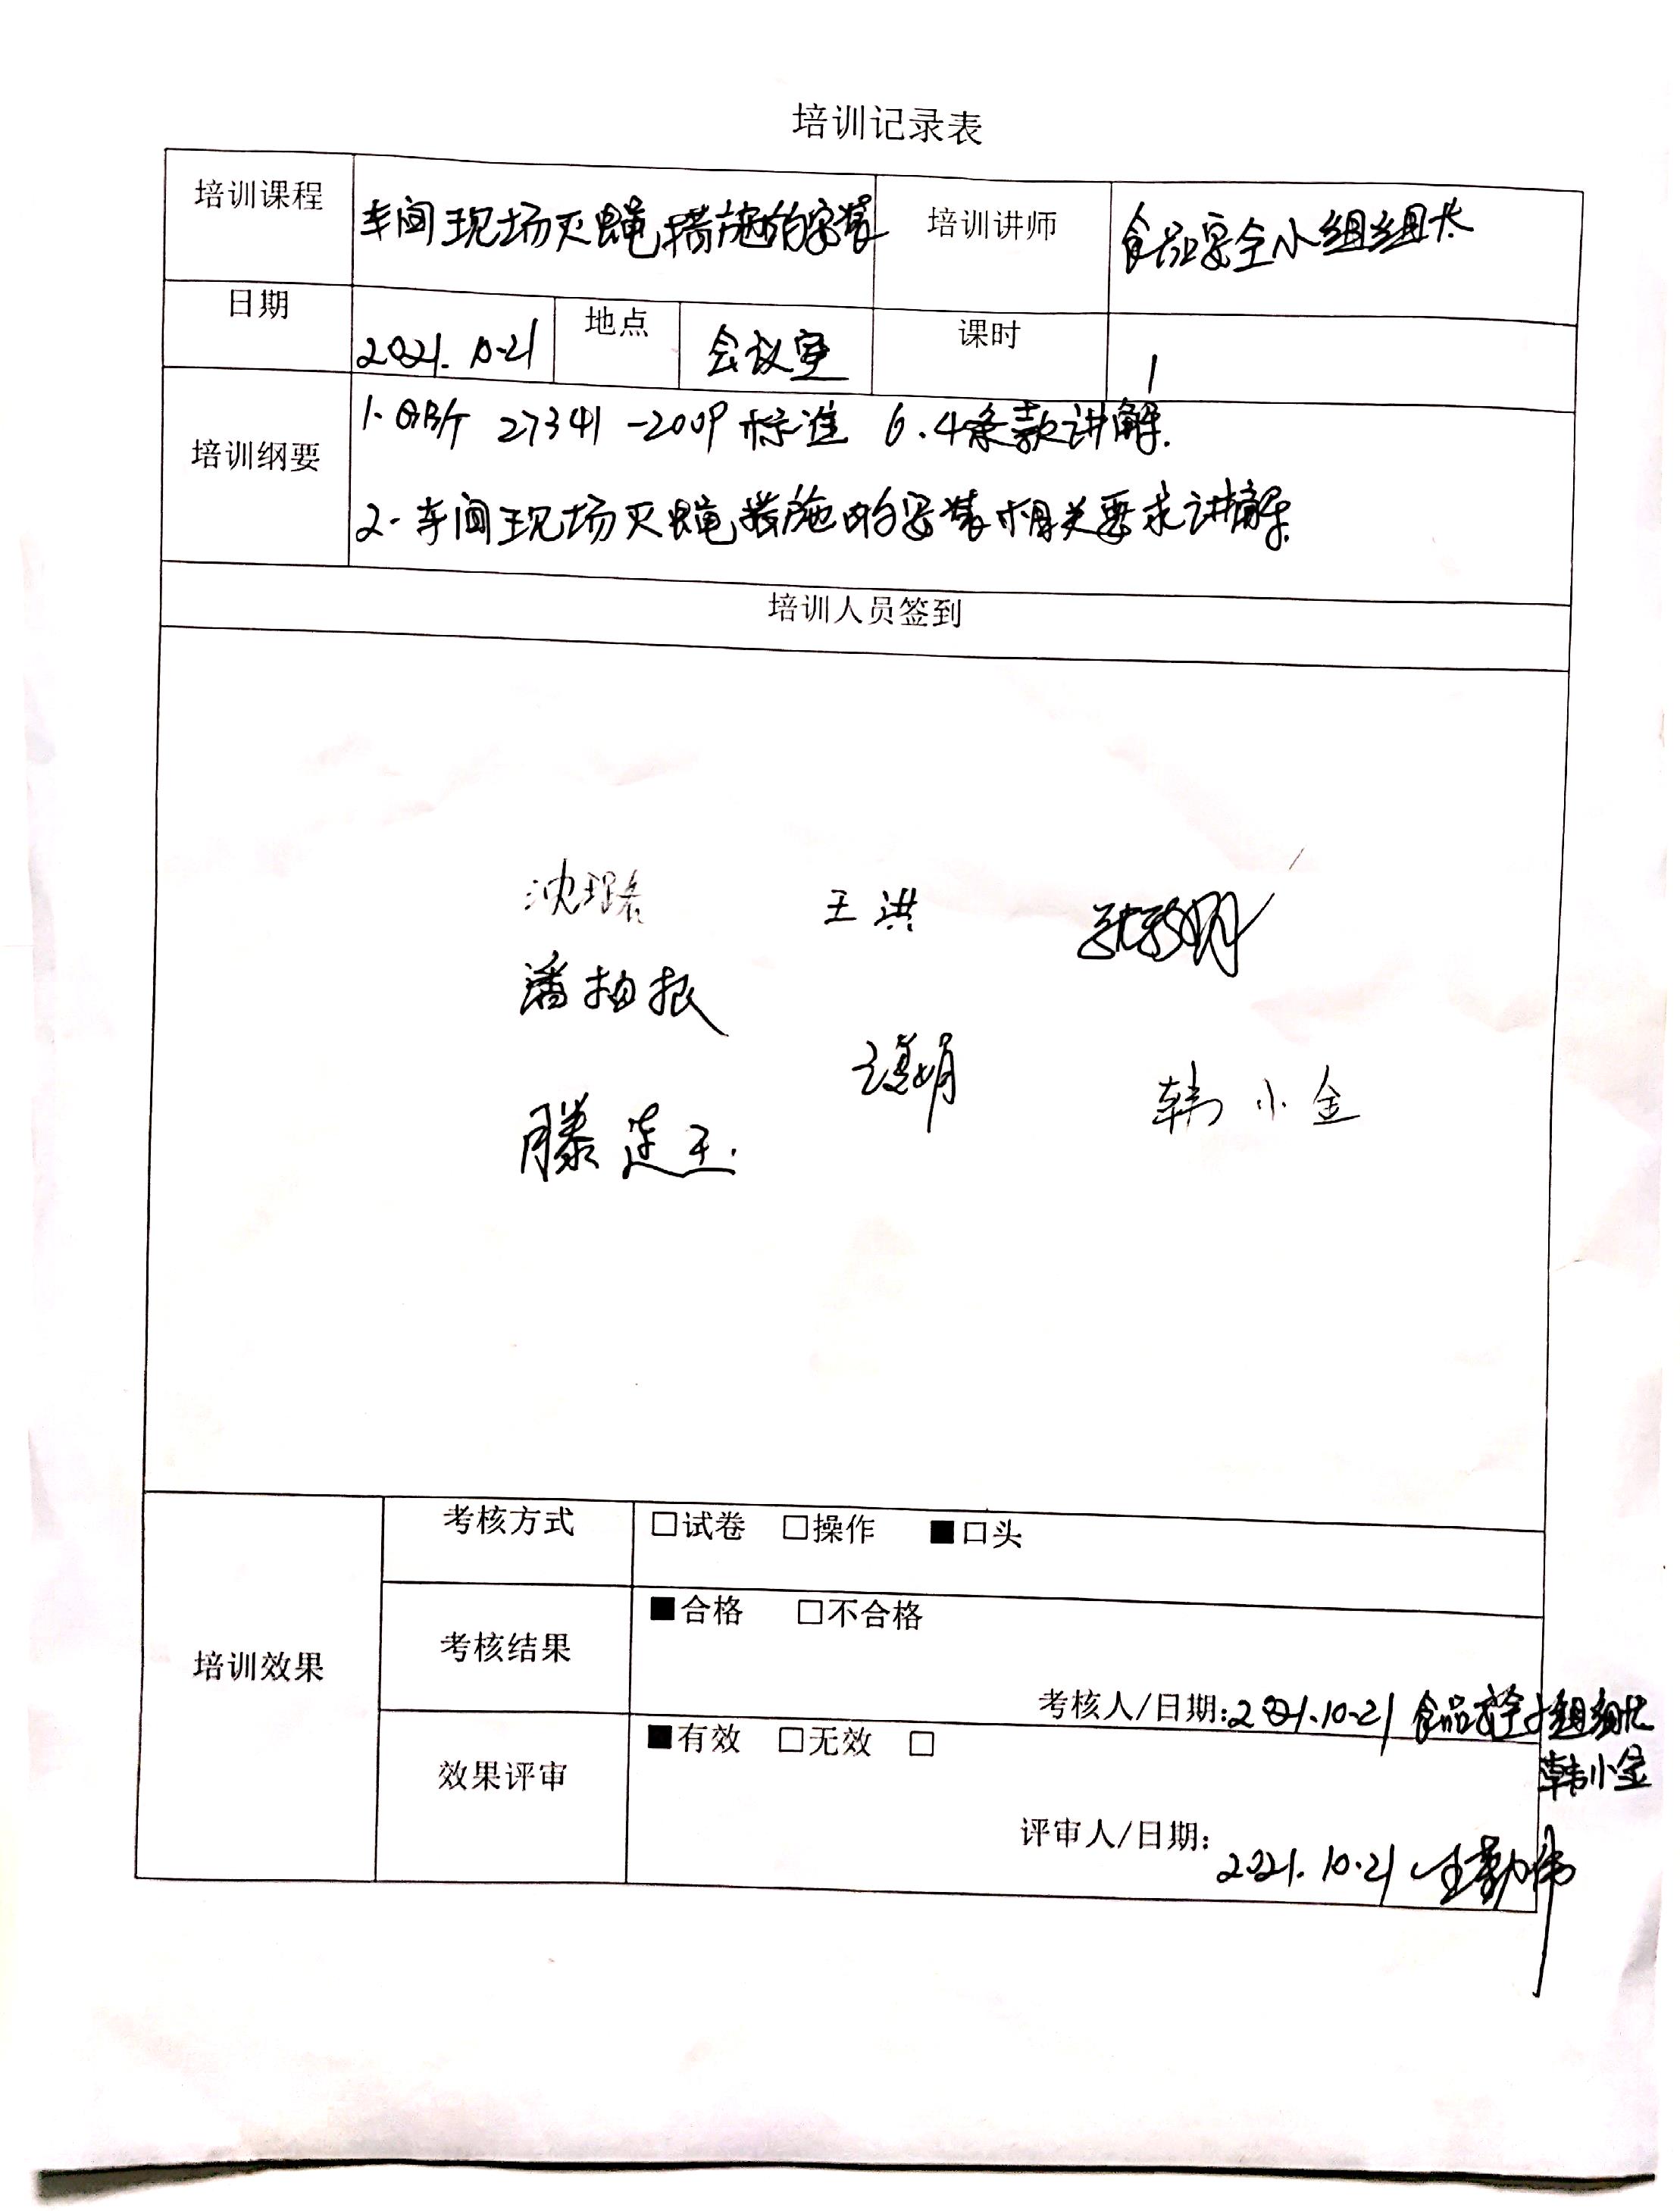 培训记录表
培训课程 车间现场灭蝇措施的安装 培训讲师 食品安全小组组长
日期 2021.10.21 地点 会议室 课时 1
培训纲要
1. GB/T 27341-2009标准 6.4条款讲解.
2. 车间现场灭蝇措施的安装相关要求讲解.
培训人员签到
沈 王洪
潘柏根
娟 韩小金
滕连玉.
培训效果
考核方式 □试卷 □操作 ■口头
考核结果 ■合格 □不合格
考核人/日期:2021.10.21 食品安全小组组长
韩小金
效果评审 ■有效 □无效 □
评审人/日期: 2021.10.21 王勤伟